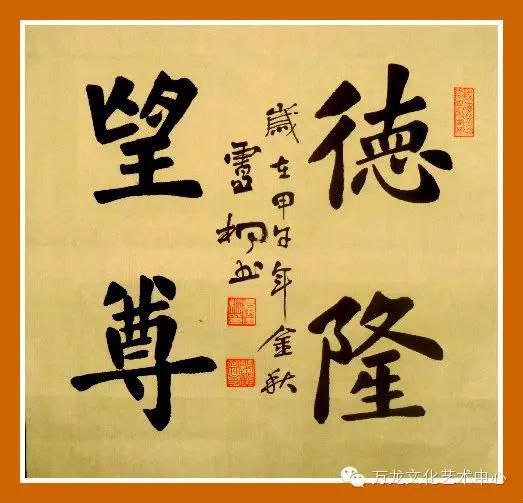 德隆
歲在甲午年金秋
书
望尊
万龙文化艺术中心